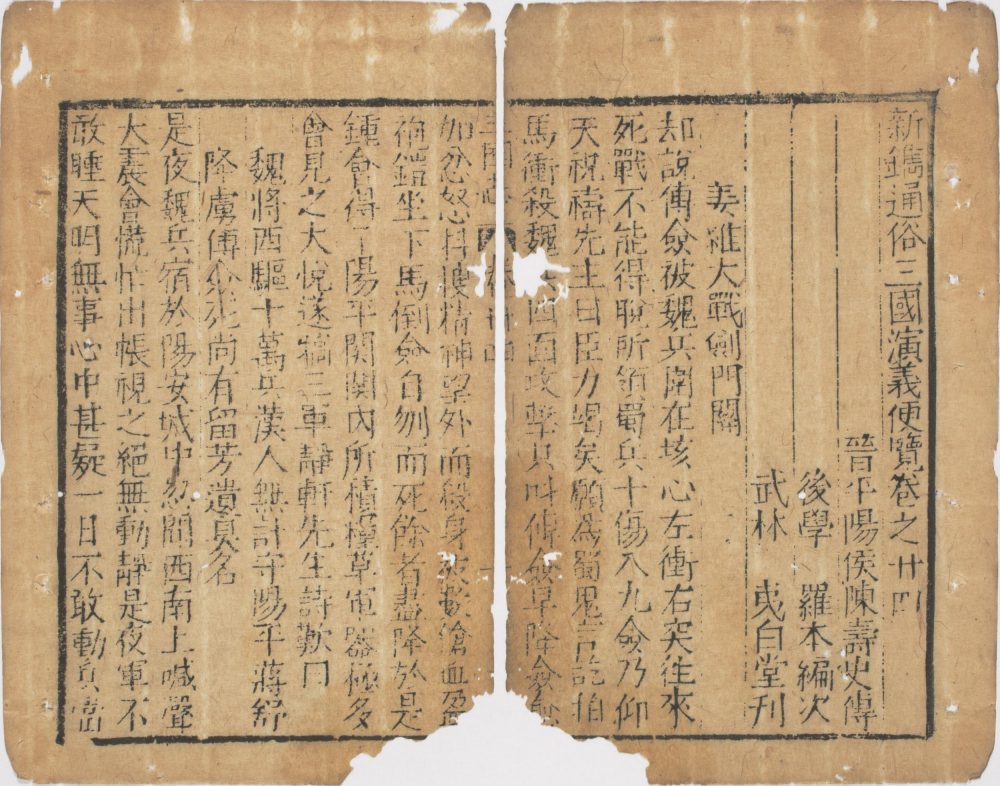 新鐫通俗三國演義便覽卷之廿四
晉平陽侯陳壽史傳
後學 羅本編次
武林 夷白堂刊
姜維大戰劍門關
却說傅僉被魏兵困在垓心左衝右突往來
死戰不能得脫所領蜀兵十傷八九僉乃仰
天祝禱先主曰臣力竭矣願為蜀鬼言訖拍
馬衝殺魏兵四面攻擊只叫傅僉早降僉愈
加忿怒抖擻精神望外而殺身 數鎗血
袍鎧坐下馬倒僉自刎而死餘者盡降於是
鍾會得了陽平關關內所積糧草軍器極多
會見之大悅遂犒三軍靜軒先生詩歎曰
魏將西驅十萬兵漢人無計守陽平蔣舒
降虜傅僉死尚有留芳遺臭名
是夜魏兵宿於陽安城中忽聞西南上喊聲
大震會慌忙出帳視之絕無動靜是夜軍不
敢睡天明無事心中甚疑一日不敢動兵當